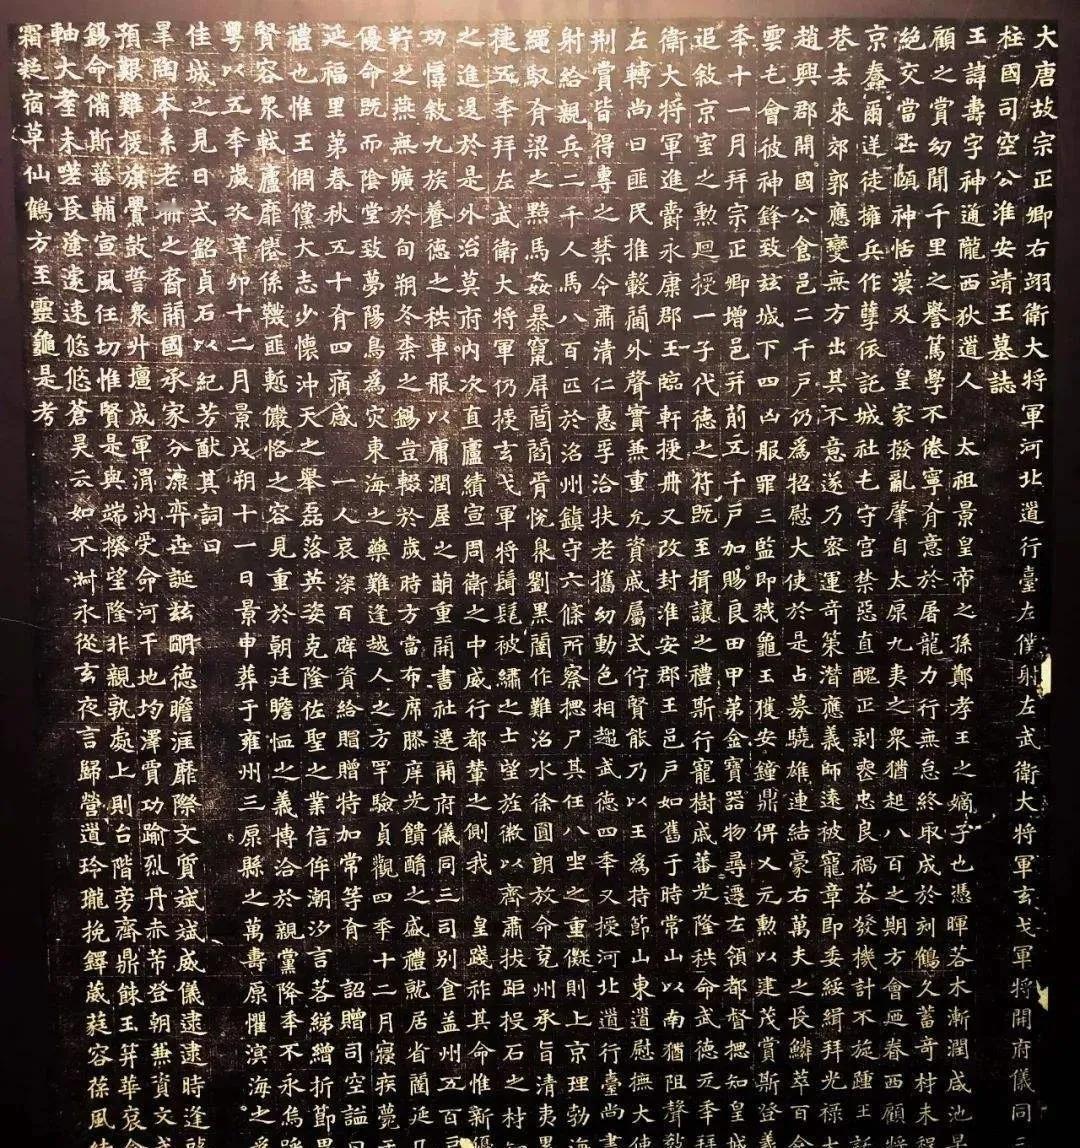 大唐故宗正卿右翊衛大將軍河北道行臺左僕射左武衛大將軍玄戈軍將開府儀同
柱國司空公淮安靖王墓誌
王諱壽字神通隴西狄道人 太祖景皇帝之孫鄭孝王之嫡子也憑暉若木漸潤咸池
顧之賞幼聞千里之譽篤學不倦寧肯意於屠龍力行無怠終取成於刻鶴久蓄奇材未
絕交當世頤神恬漠及 皇家撥亂肇自太原九夷之衆猶起八百之期方會迺眷西顧
京蠢爾送徒擁兵作孽依託城社毛守宮禁惡直醜正剥喪忠良禍若發機計不旋踵王
巷去來郊郭應變無方出其不意遂乃密運奇策潛應義師遠被寵章即委綏緝拜光祿
趙興郡開國公食邑二千戶仍為招慰大使於是占募驍雄連結豪右萬夫之長鱗萃百
雲屯會彼神鋒致玆城下四凶服罪三監即戮龜玉獲安鐘鼎俱乂元勳以建茂賞斯登
年十一月拜宗正卿增邑并前五千戶加賜良田甲第金寶器物尋遷左領都督揔知皇城
追敘京室之勳迴授一子代德之符既至揖讓之禮斯行寵樹戚蕃光隆秩命武德元年拜
衛大將軍進爵永康郡王臨軒授冊又改封淮安郡王邑戶如舊于時常山以南猶阻聲
左轉尚曰匪民推轂閫外聲實兼重允資戚屬式佇賢能乃以王為持節山東道慰撫大使
刑賞皆得專之禁令肅清仁惠孚洽扶老攜幼動色相趨武德四年又授河北道行臺尚書
射給親兵二千人馬八百匹於洺州鎮守六條所察揔尸其任八坐之重儗則上京理勃海
繩馭肯梁之黠馬姦暴竄屏閭閻胥悅泉劉黑闥作難洺水徐圓朗放命兗州承旨清夷
捷五年拜左武衛大將軍仍授玄戈軍將髶髦被繡之士望旌徽以齊肅拔距投石之材
之進退於是外治莫府內次直廬績宣周衛之中威行都輦之側我 皇踐祚其命惟新
功懋敘九族養德之秩車服以庸潤屋之蕑重開書社遷開府儀同三司別食益州五百
貯之燕無曠於旬朔冬柰之錫豈輟於歲時方當布席膠庠光饋酳之盛禮就居省蘭延
優命既而陰堂致夢陽鳥為灾東海之藥難逢越人之方罕驗貞觀四年十二月寢疾薨
延福里第春秋五十有四痛感 一人哀深百辟資給賵贈特加常等有 詔贈司空謚曰
禮也惟王倜儻大志少懷沖天之舉磊落英姿克隆佐聖之業信侔潮汐言若綈繒折節
賢容泉軾廬靡倦係韈匪慙儼恪之容見重於朝廷瞻恤之義博洽於親黨降年不永
粵以五年歲次辛卯十二月景戌朔十一日景申葬于雍州三原縣之萬壽原懼濱海之
佳城之見日式銘貞石以紀芳猷其詞曰
皐陶本系老聃之裔開國承家分源弈世誕玆明德瞻涯靡際文質斌斌威儀逮逮時逢
預艱難援旗疊鼓誓衆升壇成軍渭汭受命河干地均澤賈功踰烈丹赤芾登朝兼資文
錫命僃斯蕃輔宣風任切惟賢是與端揆望隆非親孰處上則台階旁齊鼎餗玉筓華衮
軸大耋未嗟長塗遽速悠悠蒼昊云如不淑永從玄夜言歸營道玲瓏挽鐸葳蕤容葆風
霜凝宿草仙鶴方至靈龜是考